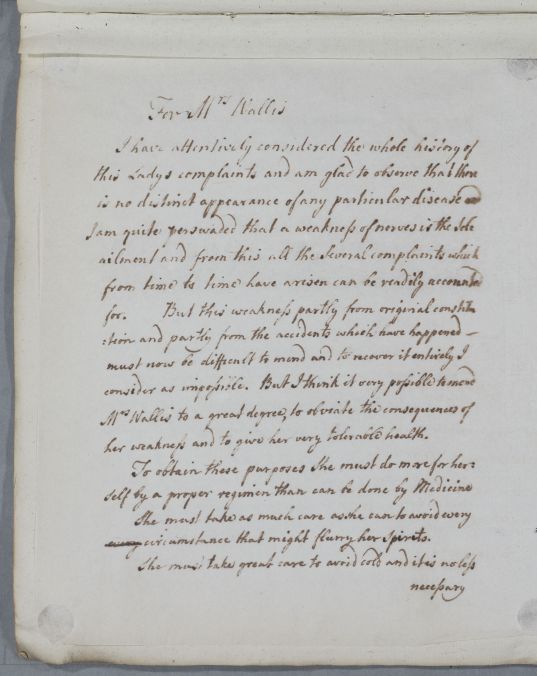 For Mrs Wallis
I have attentively considered the whole history of
this Ladys complaints and am glad to observe that there
is no distinct appearance of any particular disease and
I am quite perswaded that a weakness of nerves is the Sole
ailment and from this all the several complaints which
from time to time have arisen can be readily accounted
for. But this weakness partly from original constitu
:tion and partly from the accidents which have happened
must now be difficult to mend and to recover it entirely I
consider as impossible. But I think it very possible to mend
Mrs Wallis to a great degree, to obviate the consequences of
her weakness and to give her very tolerable health.
To obtain these purposes She must do more for her:
self by a proper regimen than can be done by Medicine
She must take as much care as she can to avoid every
every circumstance that might flurry her Spirits.
She must take great care to avoid cold and it is no less
necessary